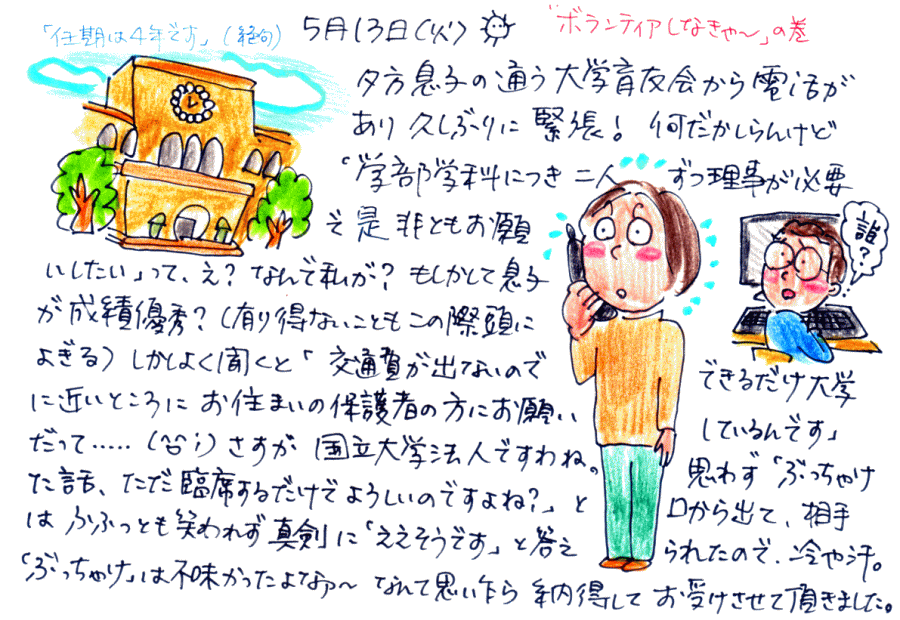 「任期は4年です」(絶句) 5月13日(火) "ボランティアしなきゃ〜"の巻
夕方息子の通う大学育友会から電話が
あり久しぶりに緊張! 何だかしらんけど
「学部学科につき二人ずつ理事が必要
で是非ともお願
誰?
いしたい」って、え?なんで私が?もしかして息子
が成績優秀?(有り得ないこともこの際頭に
よぎる)しかしよく聞くと「交通費が出てないので
できるだけ大学
に近いところにお住まいの保護者の方にお願い
しているんです」
だって‥‥‥(谷;)さすが国立大学法人ですわね。
思わず「ぶっちゃけ
た話、ただ臨席するだけでよろしいのですよね?」と
口から出て、相手
はふふっとも笑われず真剣に「ええそうです」と答え
られたので、冷や汗。
「ぶっちゃけ」は不味かったよなぁ〜なんて思い乍ら納得してお受けさせて頂きました。